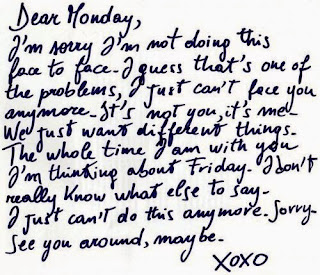 Dear Monday,
I'm sorry I'm not doing this
face to face. I guess that's one of
the problems, I just can't face you
anymore. It's not you, it's me.
We just want different things.
The whole time I am with you
I'm thinking about Friday. I don't
really know what else to say.
I just can't do this anymore. Sorry.
See you around, maybe.
XOXO